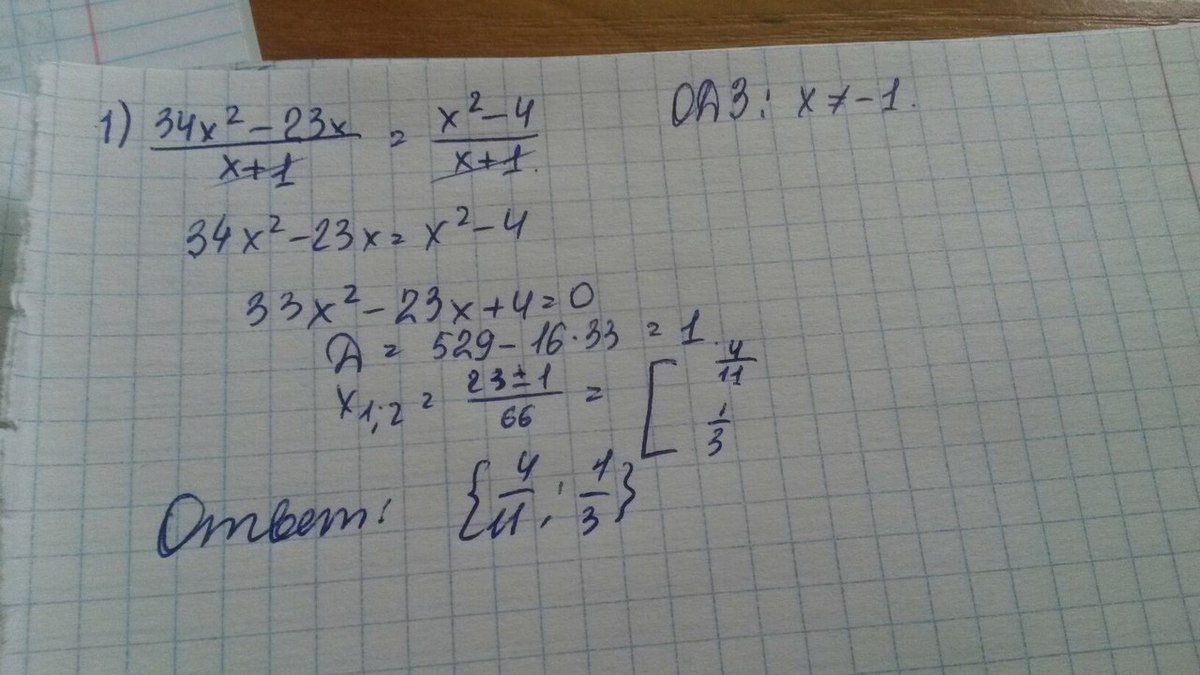 1) (34x² - 23x)/(x+1) = (x² - 4)/(x+1). ОДЗ: x ≠ -1.
34x² - 23x = x² - 4
33x² - 23x + 4 = 0
Д = 529 - 16·33 = 1.
x₁;₂ = (23 ± 1)/66 = [ 4/11 1/3
Ответ: {4/11; 1/3}